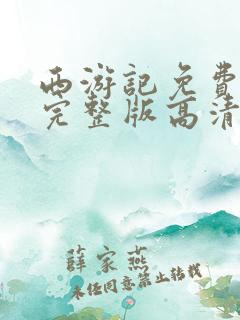 西游記免費
完整版高清
薛家燕
未经同意禁止转载